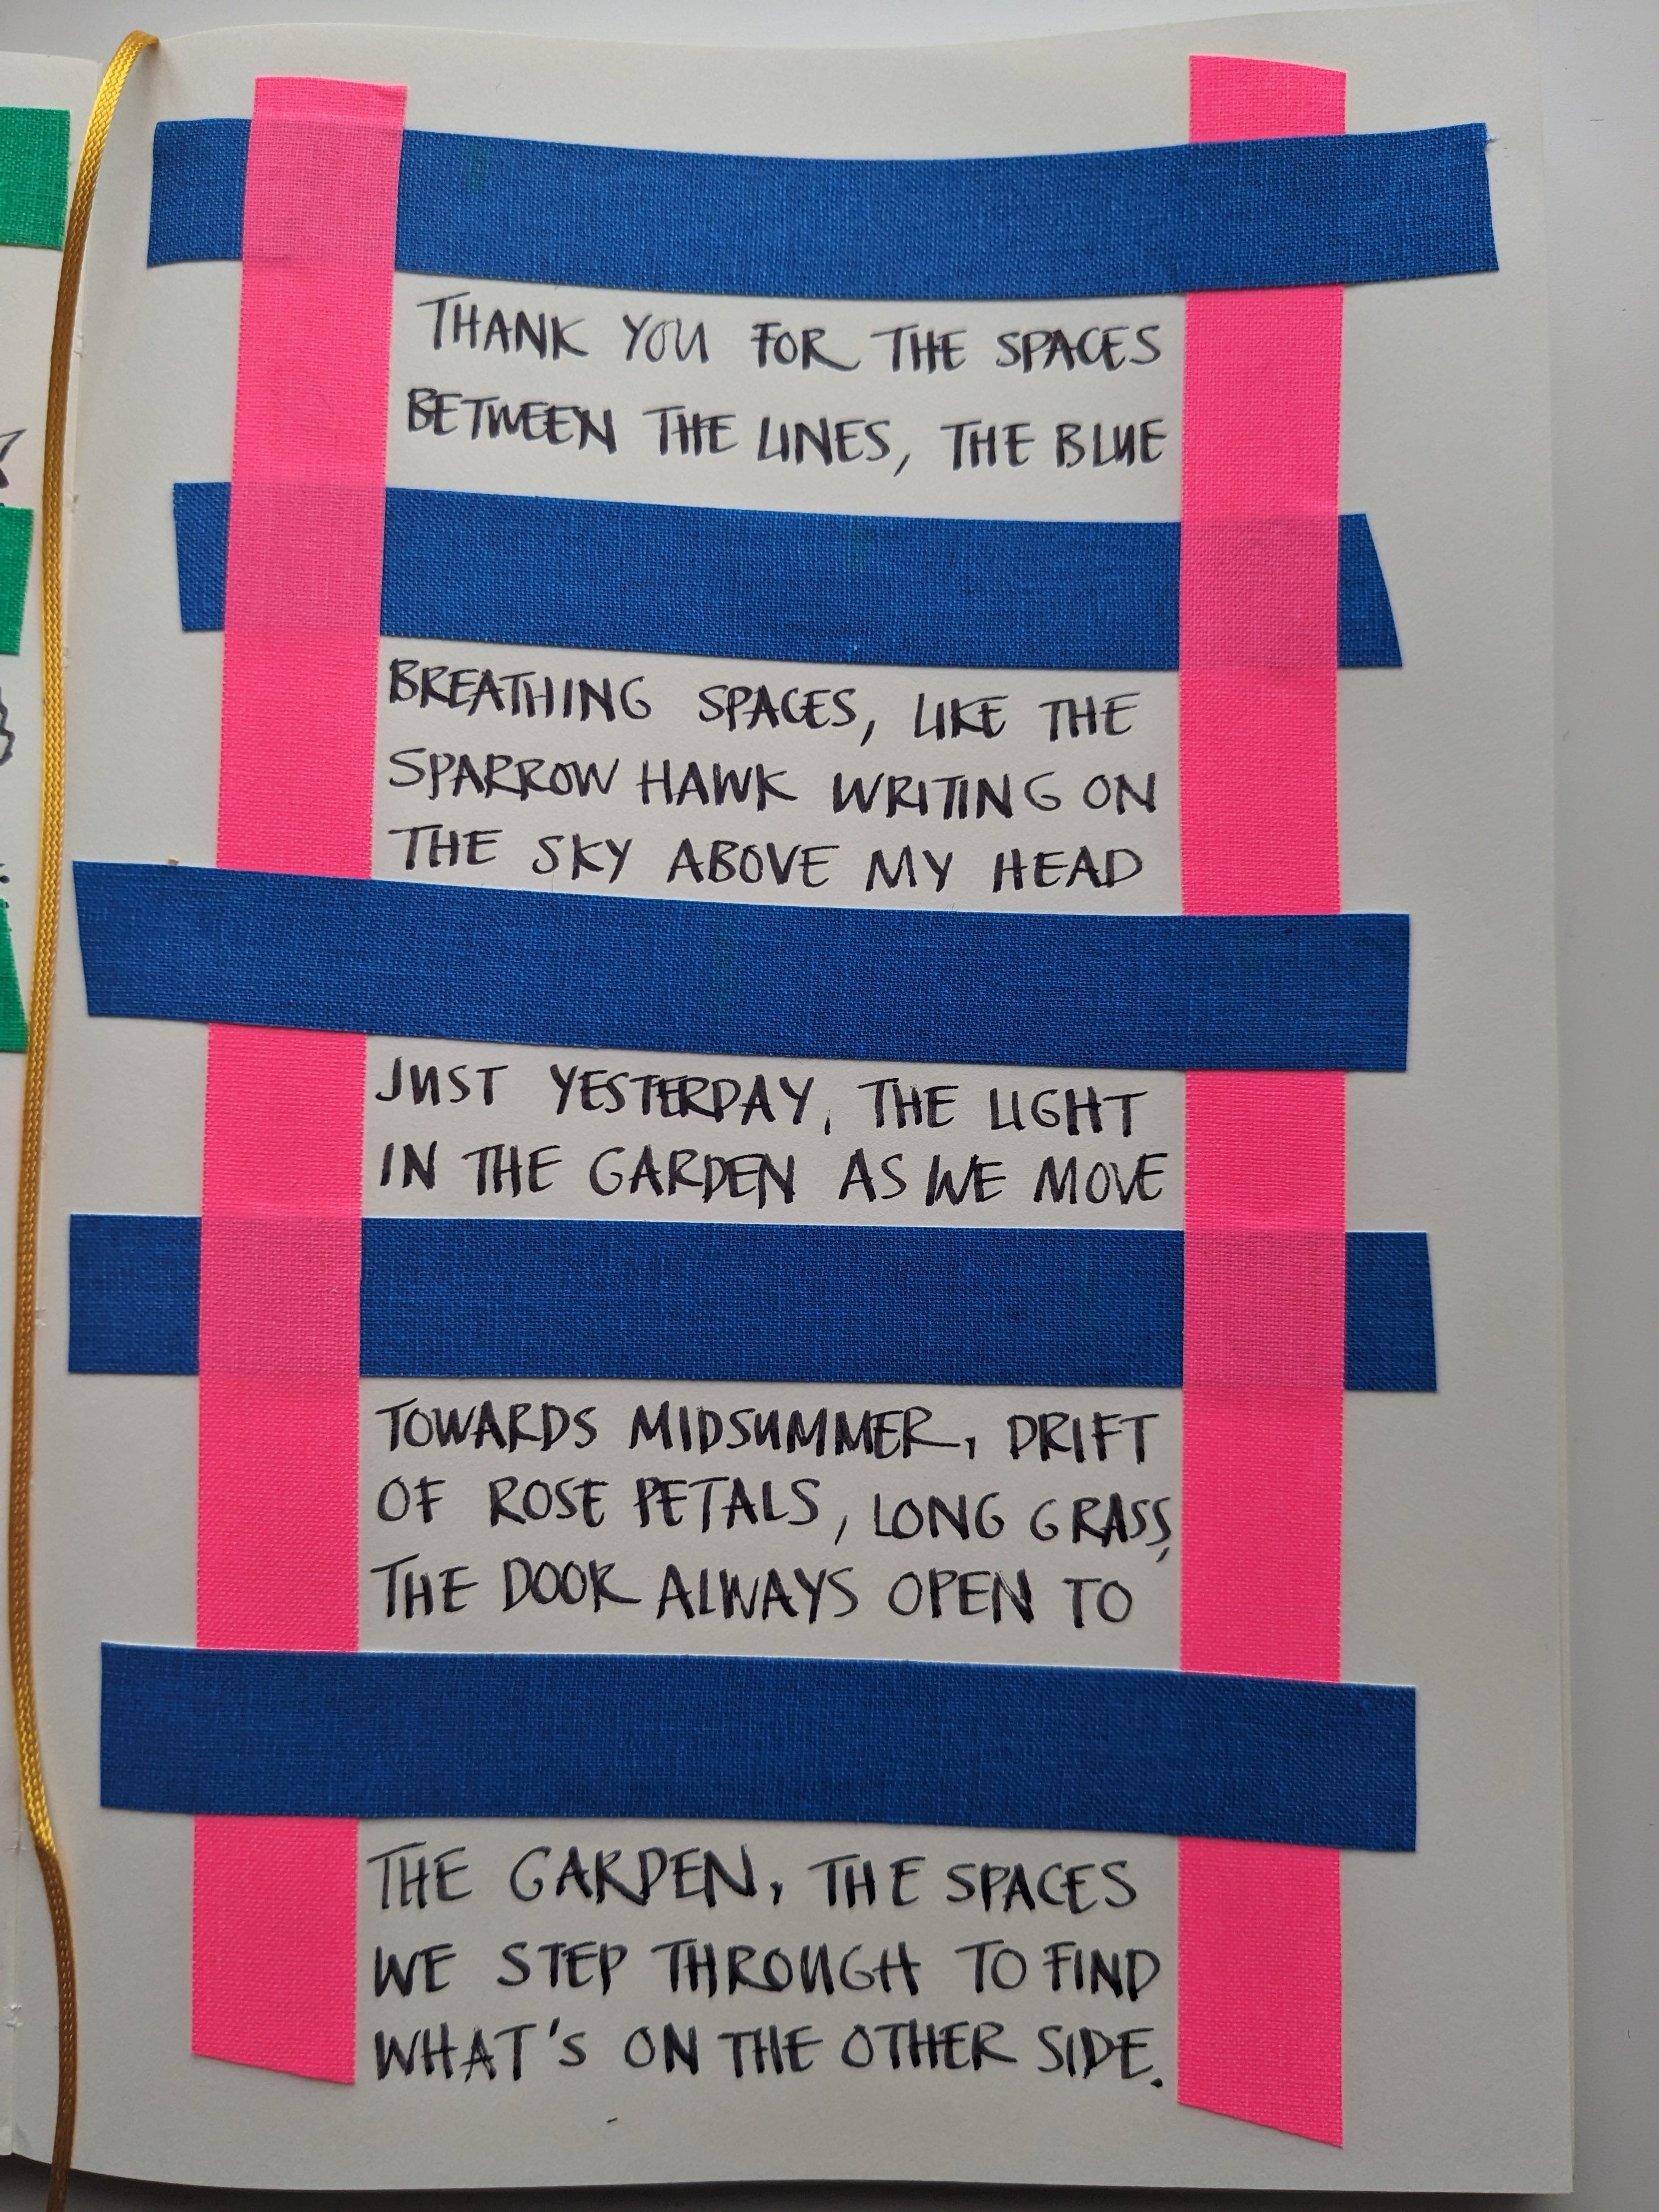 THANK YOU FOR THE SPACES
BETWEEN THE LINES, THE BLUE
BREATHING SPACES, LIKE THE
SPARROW HAWK WRITING ON
THE SKY ABOVE MY HEAD
JUST YESTERDAY, THE LIGHT
IN THE GARDEN AS WE MOVE
TOWARDS MIDSUMMER, DRIFT
OF ROSE PETALS, LONG GRASS,
THE DOOR ALWAYS OPEN TO
THE GARDEN, THE SPACES
WE STEP THROUGH TO FIND
WHAT'S ON THE OTHER SIDE.